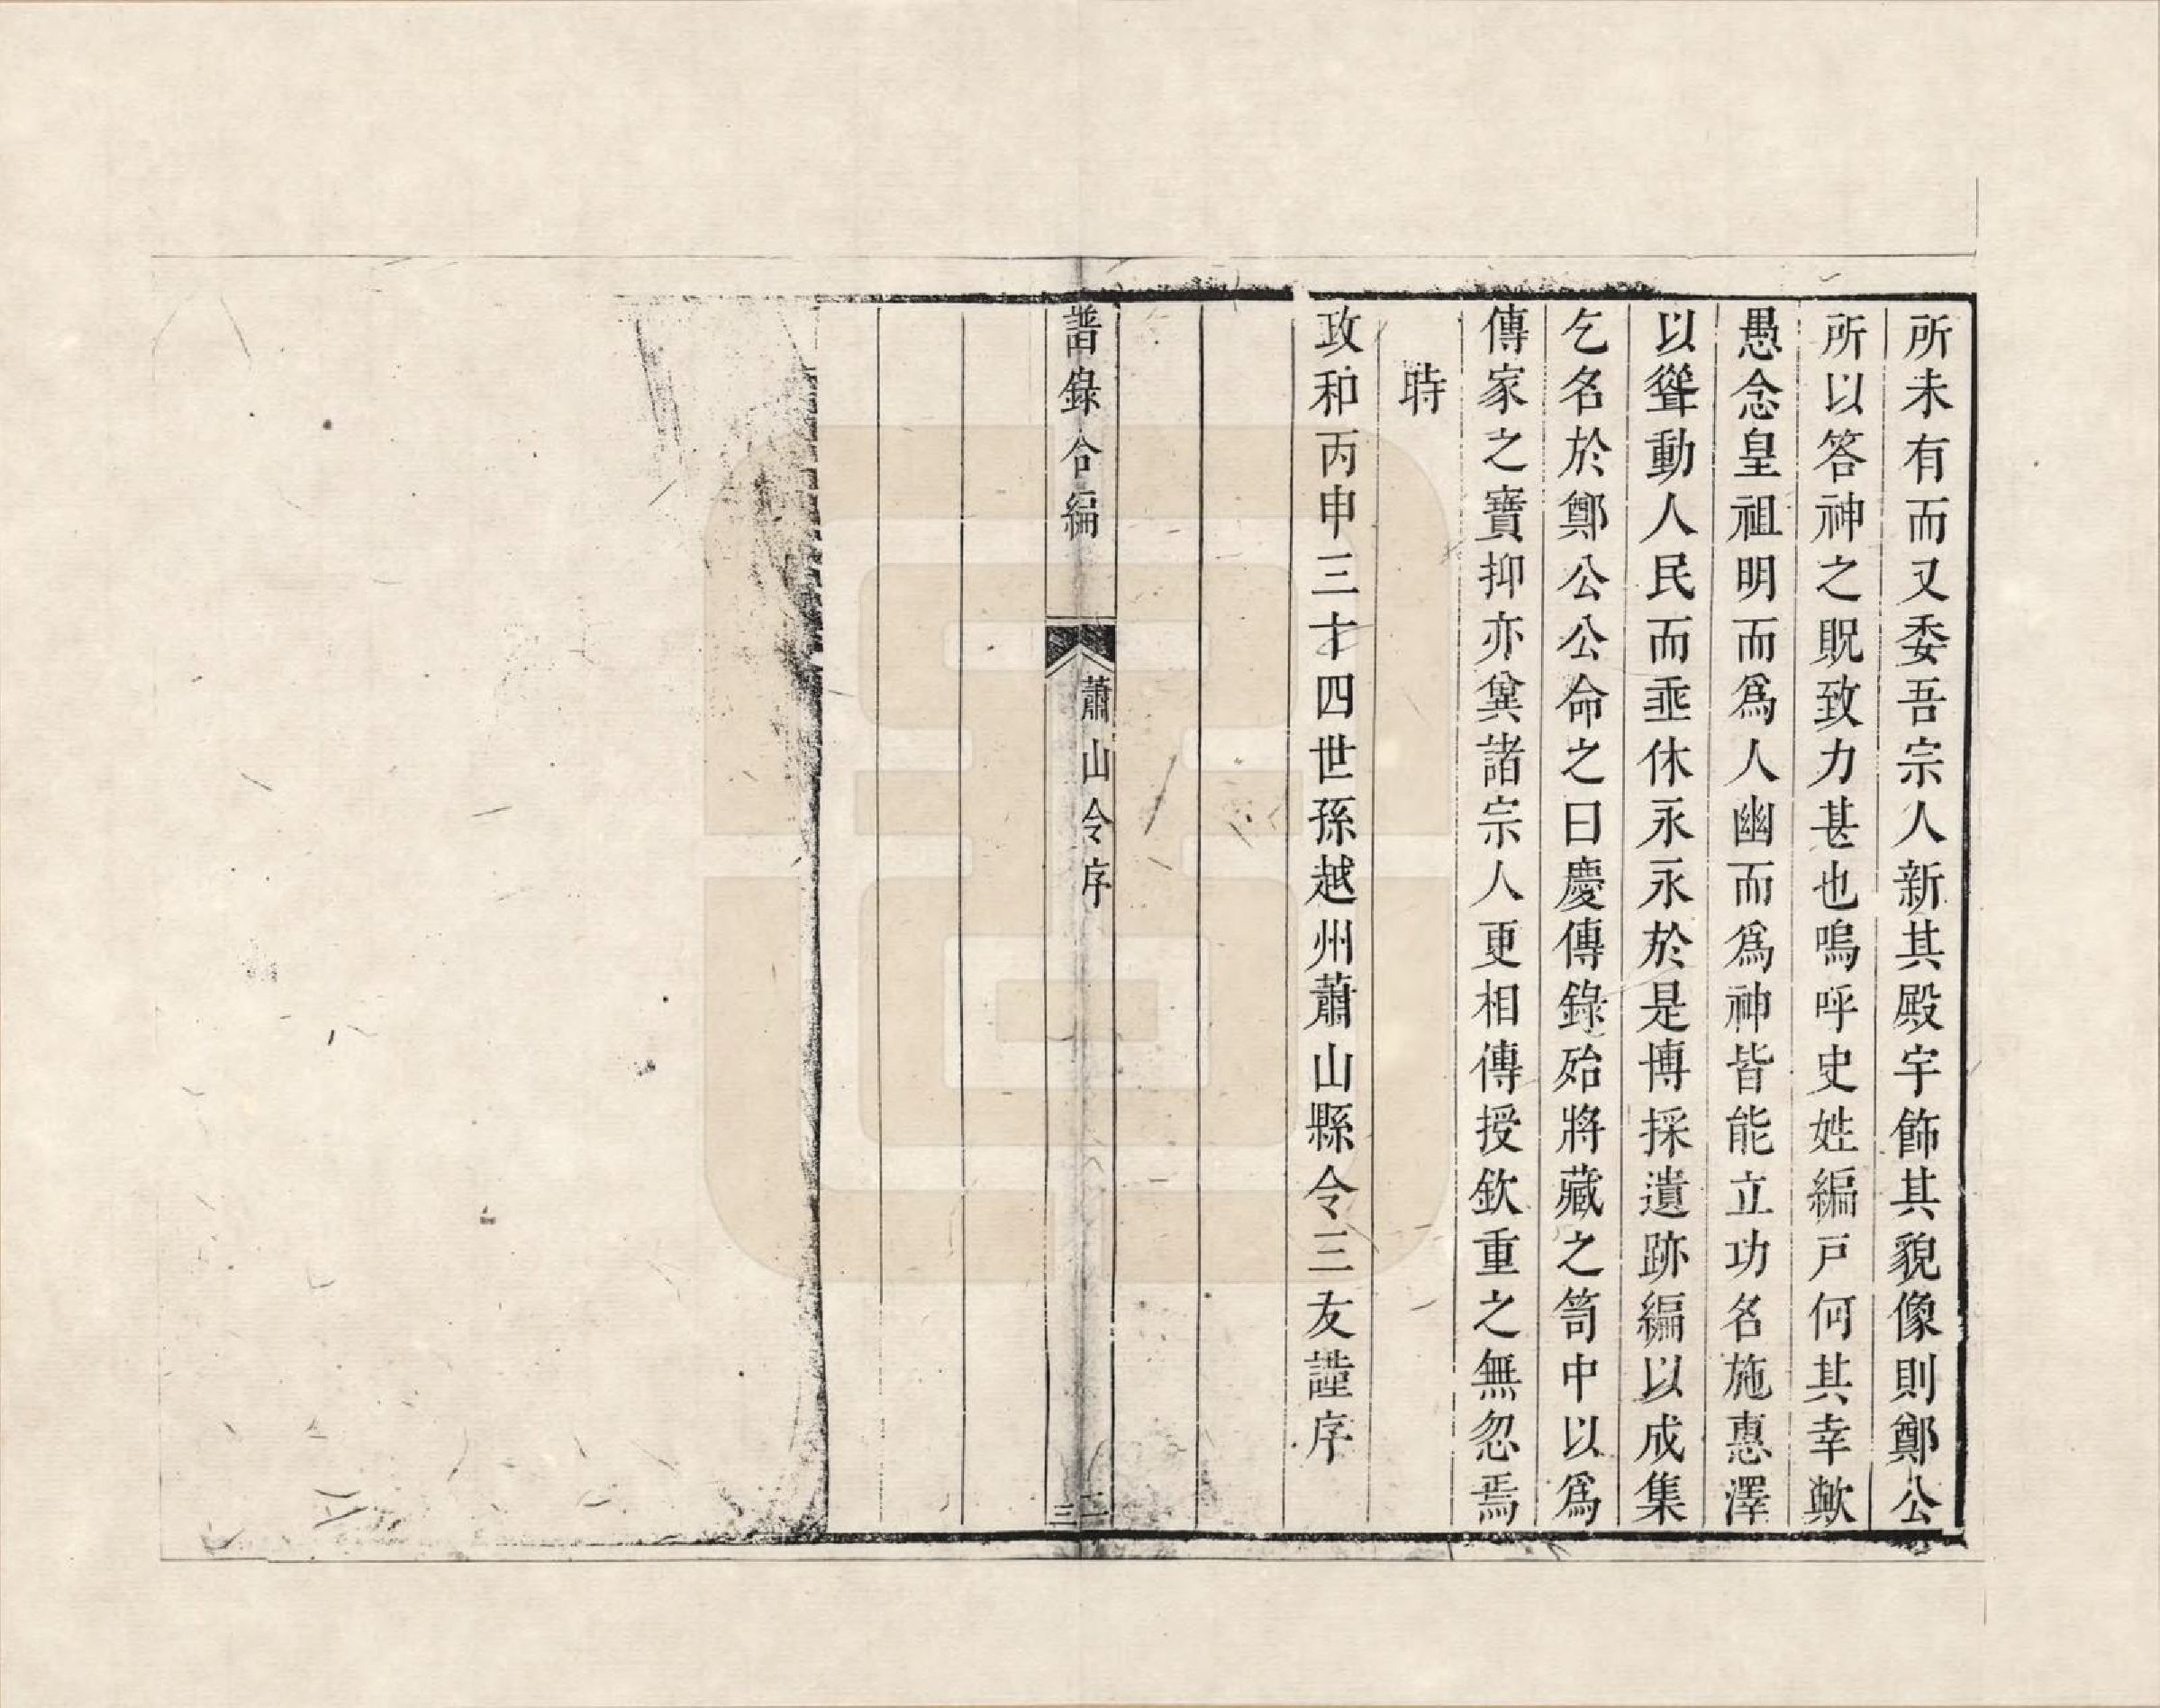 所未有而又委吾宗人新其殿宇飾其貌像則鄭公
所以答神之貺致力甚也嗚呼史姓編戸何其幸歟
愚念皇祖明而爲人幽而爲神皆能立功名施惠澤
以聳動人民而垂休永永於是博採遺跡編以成集
乞名於鄭公公命之曰慶傳錄殆將藏之笥中以爲
傳家之寶抑亦兾諸宗人更相傳授欽重之無忽焉
時
政和丙申三十四世孫越州蕭山縣令三友謹序
譜錄合編
蕭山令序
二
三